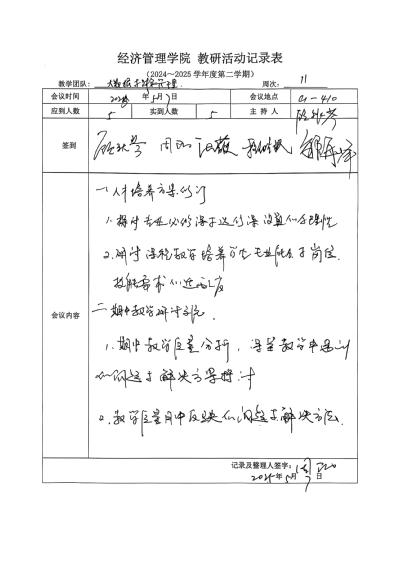 经济管理学院 教研活动记录表
（2024～2025 学年度第二学期）
教学团队： 大数据 管理 周次： 11
会议时间 2025 年 5月7日 会议地点 C1-410
应到人数 5 实到人数 5 主 持 人
签到
会议内容
一、人才培养方案修订
1. 探讨专业必修课与选修课设置的合理性
2. 研讨课程教学培养 专业能力与岗位
技能要求的适应度
二、期中教学研讨交流
1. 期中教学质量分析，课堂教学中遇到
的问题与解决方案探讨
2. 教学质量月中反映的问题与解决方法.
记录及整理人签字：
2025年5月7日